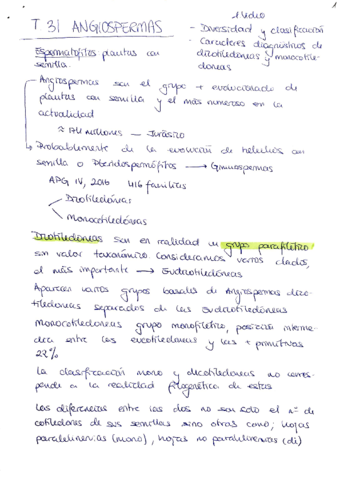 T 31 ANGIOSPERMAS
1 Video
- Diversidad y clasificación
- Caracteres diagnósticos de dicotiledóneas y monocotiledóneas
1
Espermatófitos plantas con semilla.
Angiospermas son el grupo + evolucionado de
plantas con semilla y el más numeroso en la
actualidad
≈ 174 millones → Jurásico
→ Probablemente de la evolución de helechos con
semilla o Pteridospermófitos → Gimnospermas
APG IV, 2016 416 familias
Dicotiledóneas
Monocotiledóneas
Dicotiledóneas son en realidad un grupo parafilético
sin valor taxonómico consideramos varios clados,
el más importante → Eudicotiledóneas
Aparecen varios grupos basales de Angiospermas dico-
tiledóneas separados de las eudicotiledóneas
Monocotiledóneas grupo monofilético, posición interme-
dia entre las eucotiledóneas y las + primitivas
22%
La clasificación mono y dicotiledóneas no corres-
ponde a la realidad filogenética de estas
Las diferencias entre las dos no son solo el nº de
cotiledones de sus semillas sino otras como; hojas
paralelinervias (mono), hojas no paralelinervias (di)